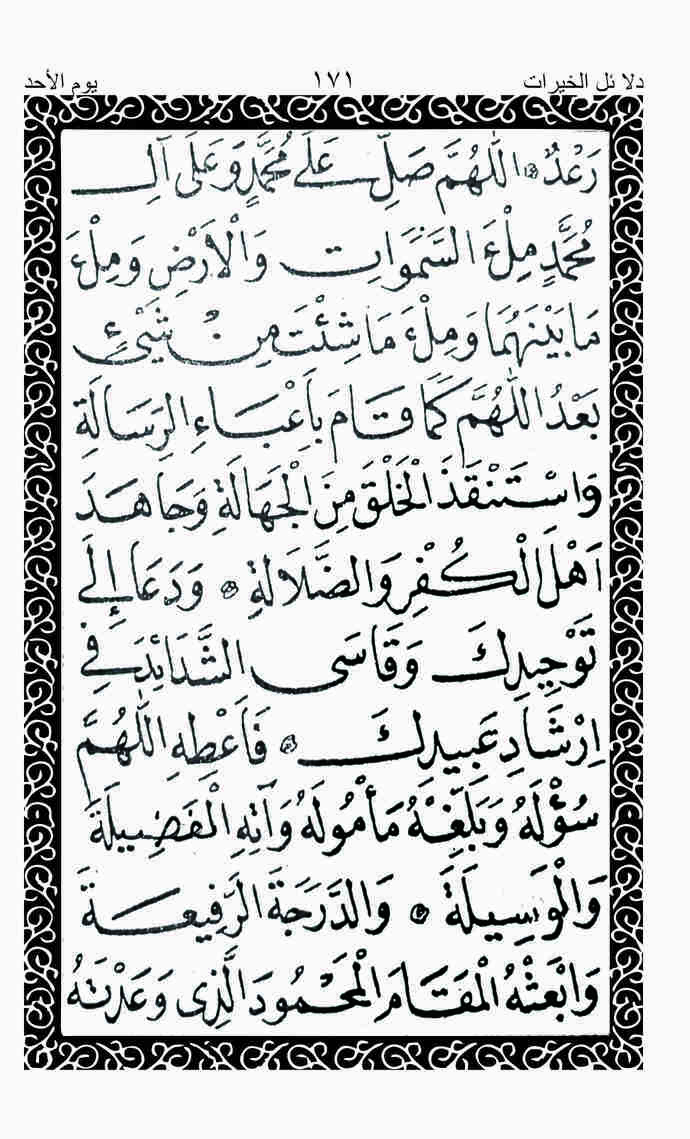 دلائل الخيرات ١٧١ يوم الأحد
رَعْدٌ اللّٰهُمَّ صَلِّ عَلٰى مُحَمَّدٍ وَعَلٰى آلِ
مُحَمَّدٍ مِلْءَ السَّمٰوَاتِ وَالْاَرْضِ وَمِلْءَ
مَا بَيْنَهُمَا وَمِلْءَ مَا شِئْتَ مِنْ شَيْئٍ
بَعْدُ اللّٰهُمَّ كَمَا قَامَ بِاَعْبَاءِ الرِّسَالَةِ
وَاسْتَنْقَذَ الْخَلْقَ مِنَ الْجَهَالَةِ وَجَاهَدَ
اَهْلَ الْكُفْرِ وَالضَّلَالَةِ وَدَعَا اِلٰى
تَوْحِيدِكَ وَقَاسَى الشَّدَائِدَ فِي
اِرْشَادِ عَبِيدِكَ فَاَعْطِهِ اللّٰهُمَّ
سُؤْلَهُ وَبَلِّغْهُ مَأْمُولَهُ وَآتِهِ الْفَضِيلَةَ
وَالْوَسِيلَةَ وَالدَّرَجَةَ الرَّفِيعَةَ
وَابْعَثْهُ الْمَقَامَ الْمَحْمُودَ الَّذِى وَعَدْتَهُ